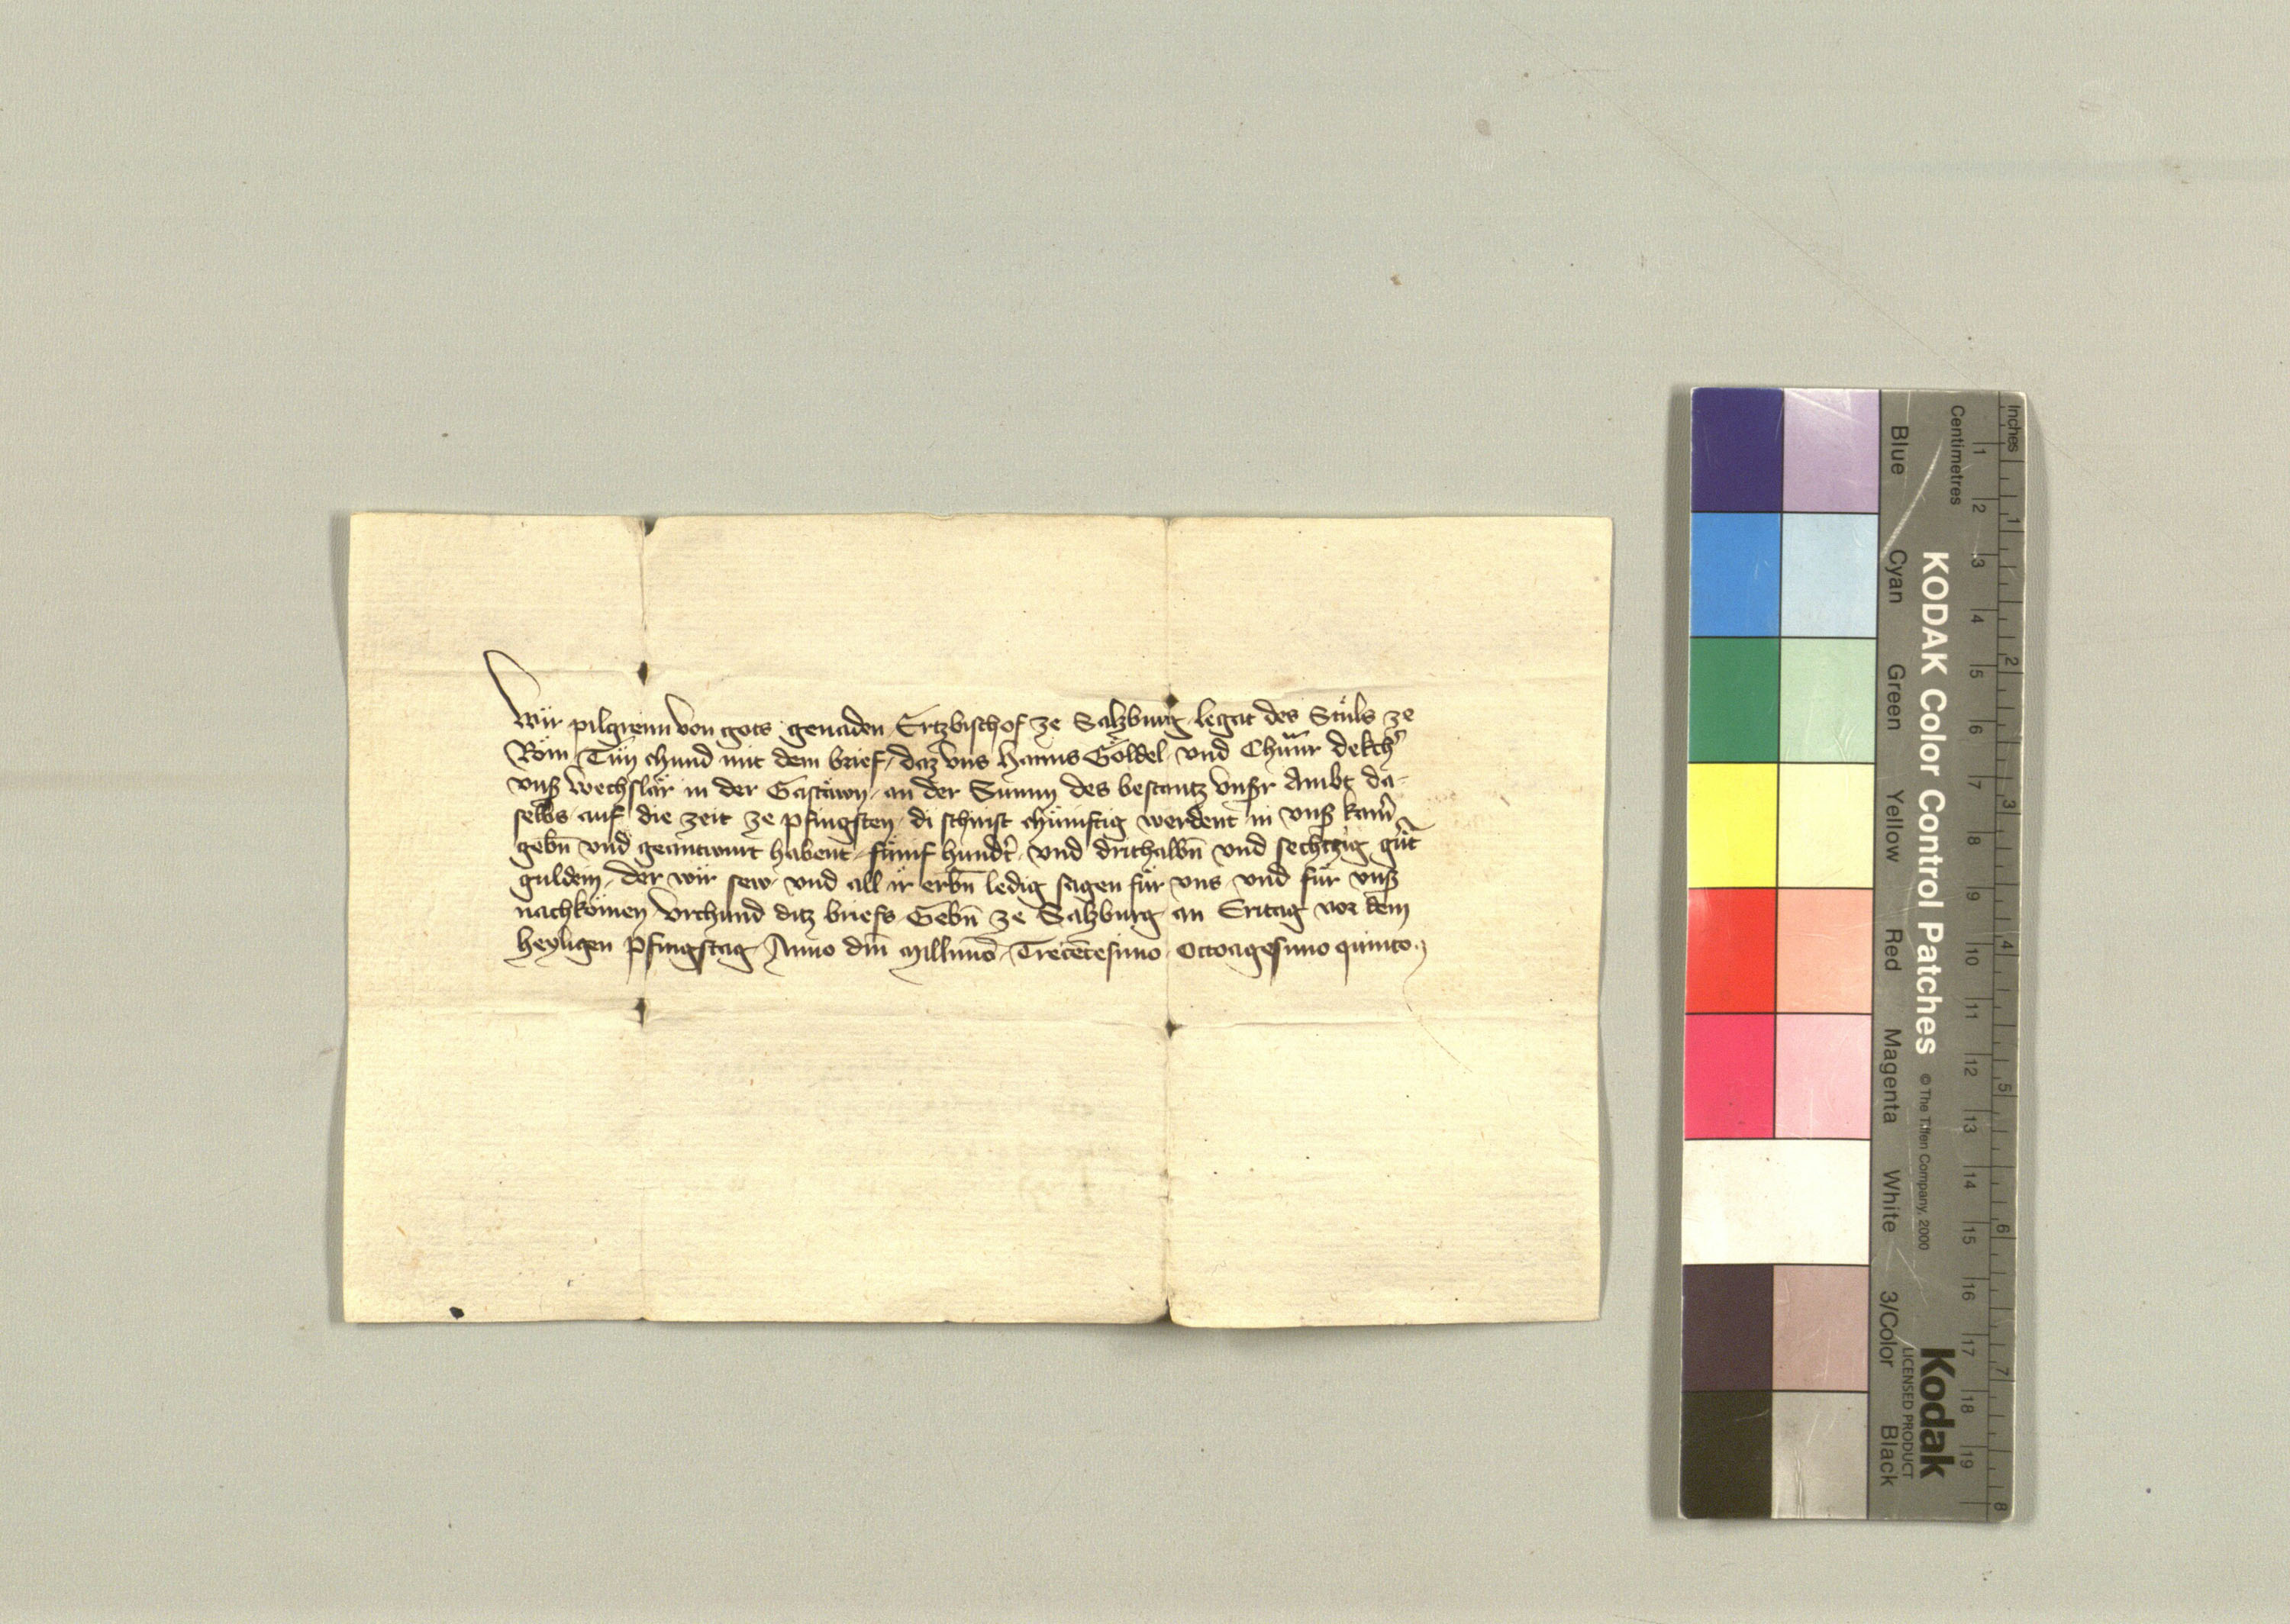 Wir pilgreim von gots genaden Ertzbischof ze Salzburg legat des Stuls ze
Rom Tun chund mit dem brief daz vns Hanns Göldel vnd Chunr dekch̄
vnß wechslär in der Gastäwn an der Summ des bestantz vnsr Ambt da-
selbs auf die zeit ze pfingsten di schirist chünftig werdent in vnß kam̄
gebn̄ vnd geantwurt habent fümf hundt̄ vnd drithalbn̄ vnd sechtzig gůt
guldein der wir sew vnd all ir erbn̄ ledig sagen für vns vnd für vnß
nachkömen Vrchund ditz briefs Gebn̄ ze Salzburg an Eritag vor dem
heyligen Pfingstag Anno dm̄ Millimo Trecētesimo Octoagesimo quinto
Inches
Centimetres
Blue Cyan Green Yellow Red Magenta White 3/Color Black
KODAK Color Control Patches © The Tiffen Company, 2000
Kodak
LICENSED PRODUCT
1 2 3 4 5 6 7 8 9 10 11 12 13 14 15 16 17 18 19
1 2 3 4 5 6 7 8